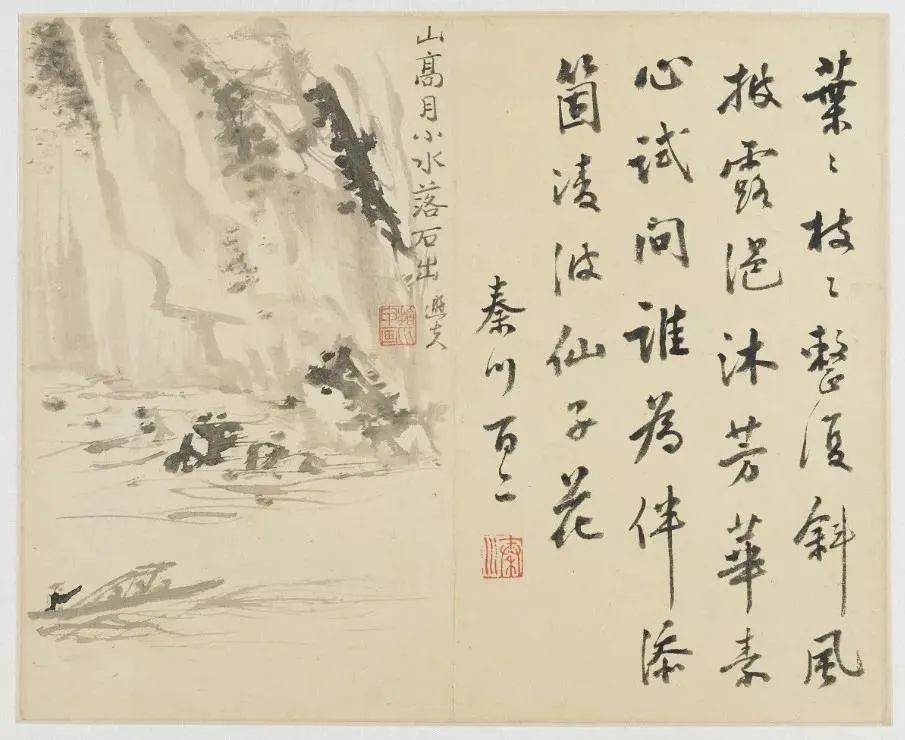 葉〻枝〻整復斜風
披露浥沐芳華素
心試問誰為伴添
箇淩波仙子花
秦川百二
山髙月小水落石出